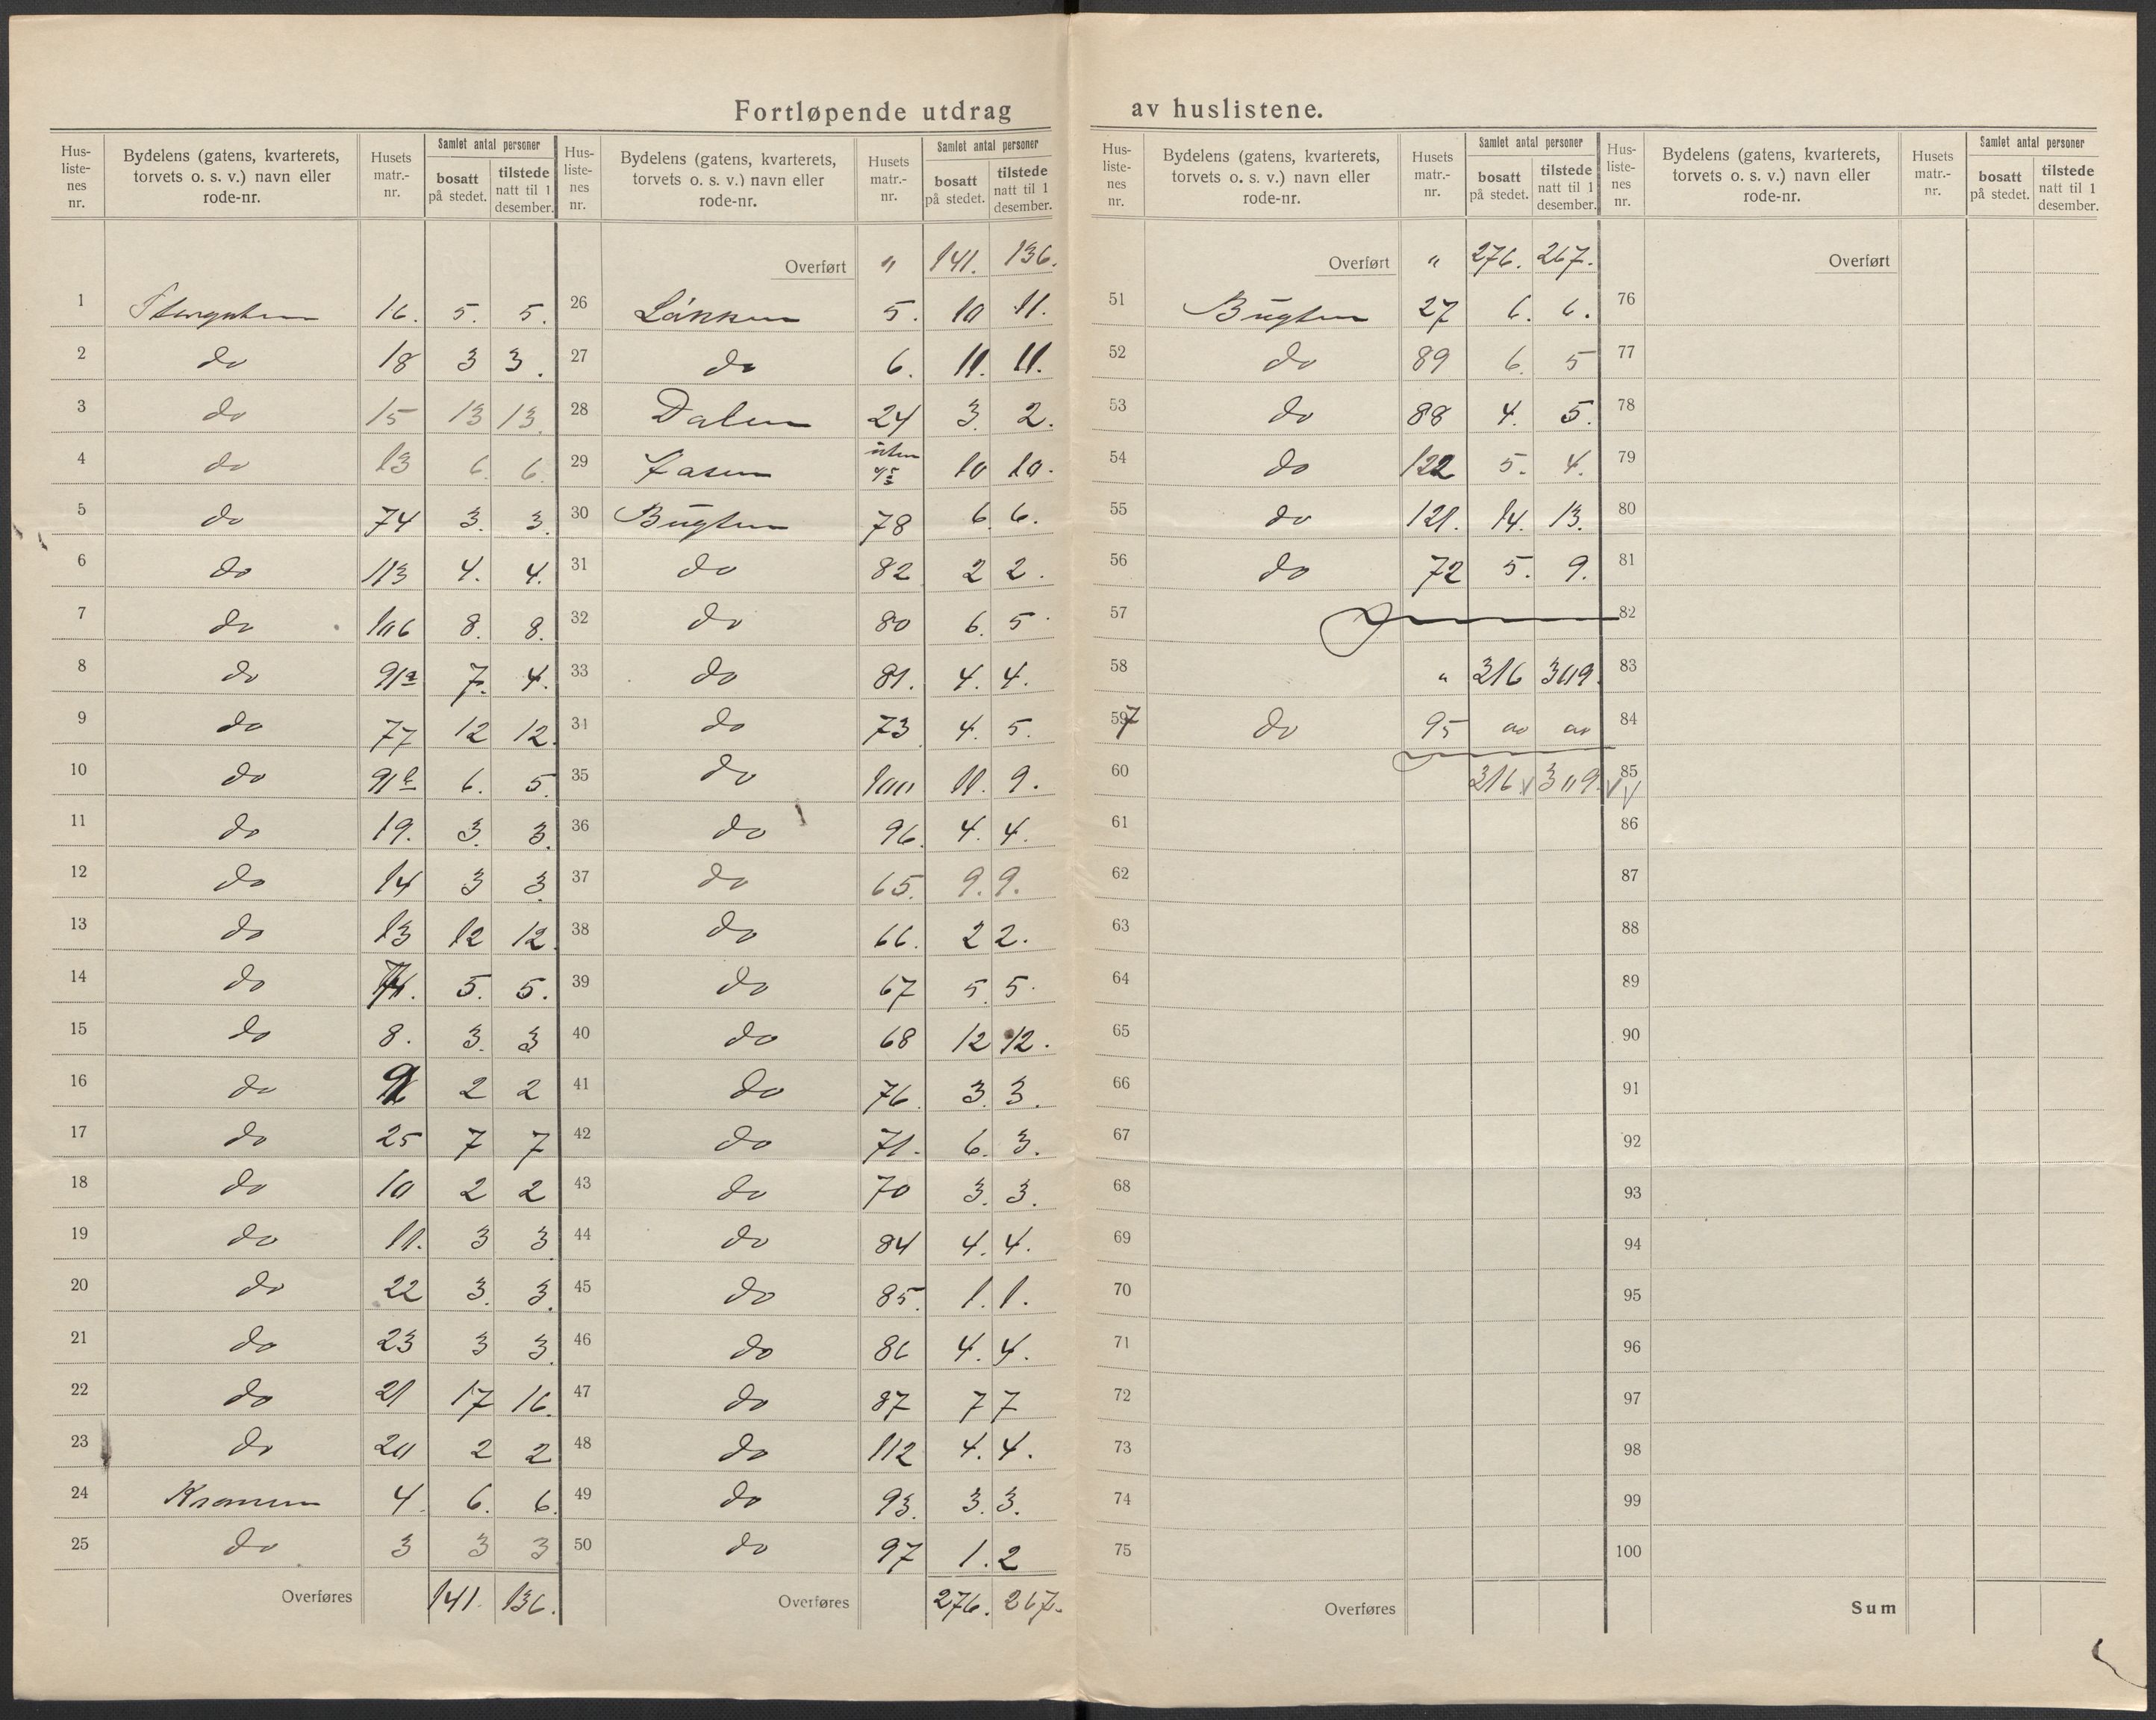 Fortløpende utdrag av huslistene.
Hus-liste-nes nr. | Bydelens (gatens, kvarterets, torvets o. s. v.) navn eller rode-nr. | Husets matr.-nr. | Samlet antal personer bosatt på stedet. | tilstede natt til 1 desember.
1 16. 5. 5.
2 do 18 3 3.
3 do 15 13 13.
4 do 13 6. 6.
5 do 74 3. 3.
6 do 113 4. 4.
7 do 106 8. 8.
8 do 91a 7. 4.
9 do 77 12 12.
10 do 91b 6. 5.
11 do 19. 3. 3.
12 do 14 3 3.
13 do 13 12 12.
14 do 5. 5.
15 do 8. 3. 3
16 do 2 2
17 do 25 7 7
18 do 10 2 2
19 do 11. 3 3.
20 do 22 3. 3.
21 do 23 3 3.
22 do 21 17 16.
23 do 20 2 2
24 4. 6. 6.
25 do 3 3 3
Overføres 141. 136.
Hus-liste-nes nr. | Bydelens (gatens, kvarterets, torvets o. s. v.) navn eller rode-nr. | Husets matr.-nr. | Samlet antal personer bosatt på stedet. | tilstede natt til 1 desember.
Overført " 141. 136.
26 Løkken 5. 10 11.
27 do 6. 11. 11.
28 Dalen 24 3. 2.
29 10 10.
30 Bugten 78 6. 6.
31 do 82 2 2.
32 do 80 6. 5
33 do 81. 4. 4.
34 do 73 4. 5.
35 do 100 11. 9.
36 do 96. 4. 4.
37 do 65. 9. 9.
38 do 66. 2 2.
39 do 67 5. 5.
40 do 68 12 12.
41 do 76. 3. 3.
42 do 71. 6. 3.
43 do 70 3. 3.
44 do 84 4. 4.
45 do 85. 1. 1.
46 do 86 4. 4.
47 do 87 7 7
48 do 112 4. 4.
49 do 93. 3. 3.
50 do 97 1. 2
Overføres 276. 267.
Hus-liste-nes nr. | Bydelens (gatens, kvarterets, torvets o. s. v.) navn eller rode-nr. | Husets matr.-nr. | Samlet antal personer bosatt på stedet. | tilstede natt til 1 desember.
Overført " 276. 267.
51 Bugten 27 6. 6.
52 do 89 6. 5
53 do 88 4. 5.
54 do 122 5. 4.
55 do 121. 14. 13.
56 do 72 5. 9.
57
58 " 316 309.
59 7 do 95
60 316. 309.
61
62
63
64
65
66
67
68
69
70
71
72
73
74
75
Overføres
Hus-liste-nes nr. | Bydelens (gatens, kvarterets, torvets o. s. v.) navn eller rode-nr. | Husets matr.-nr. | Samlet antal personer bosatt på stedet. | tilstede natt til 1 desember.
Overført
76
77
78
79
80
81
82
83
84
85
86
87
88
89
90
91
92
93
94
95
96
97
98
99
100
Sum